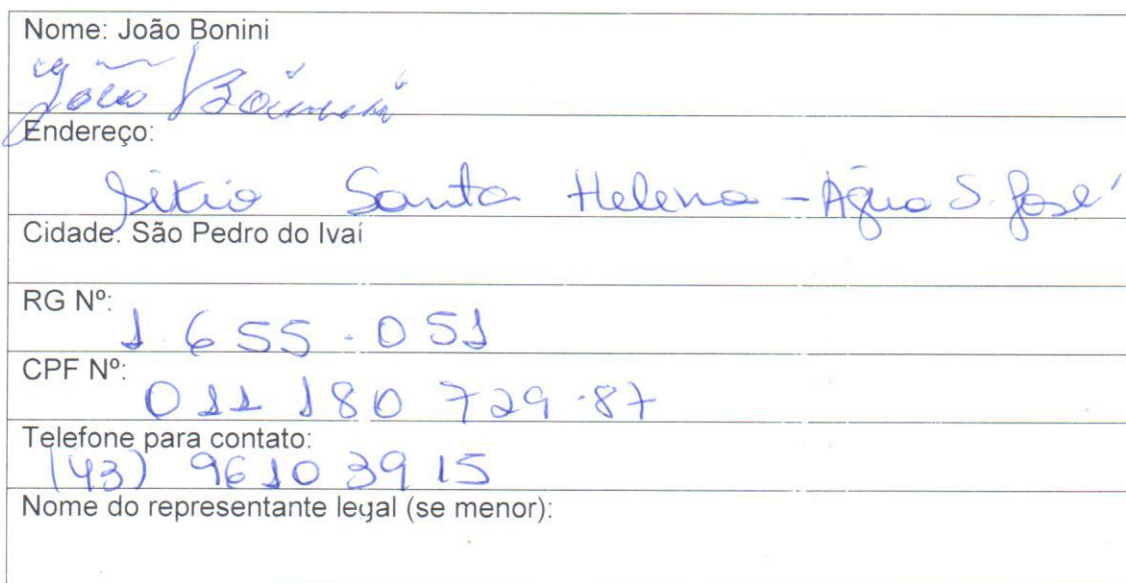 Nome: João Bonini
João Bonini
Endereço:
Sitio Santa Helena - Água S. José
Cidade: São Pedro do Ivaí
RG Nº:
1.655.051
CPF Nº:
011 180 729.87
Telefone para contato:
(43) 9610 3915
Nome do representante legal (se menor):